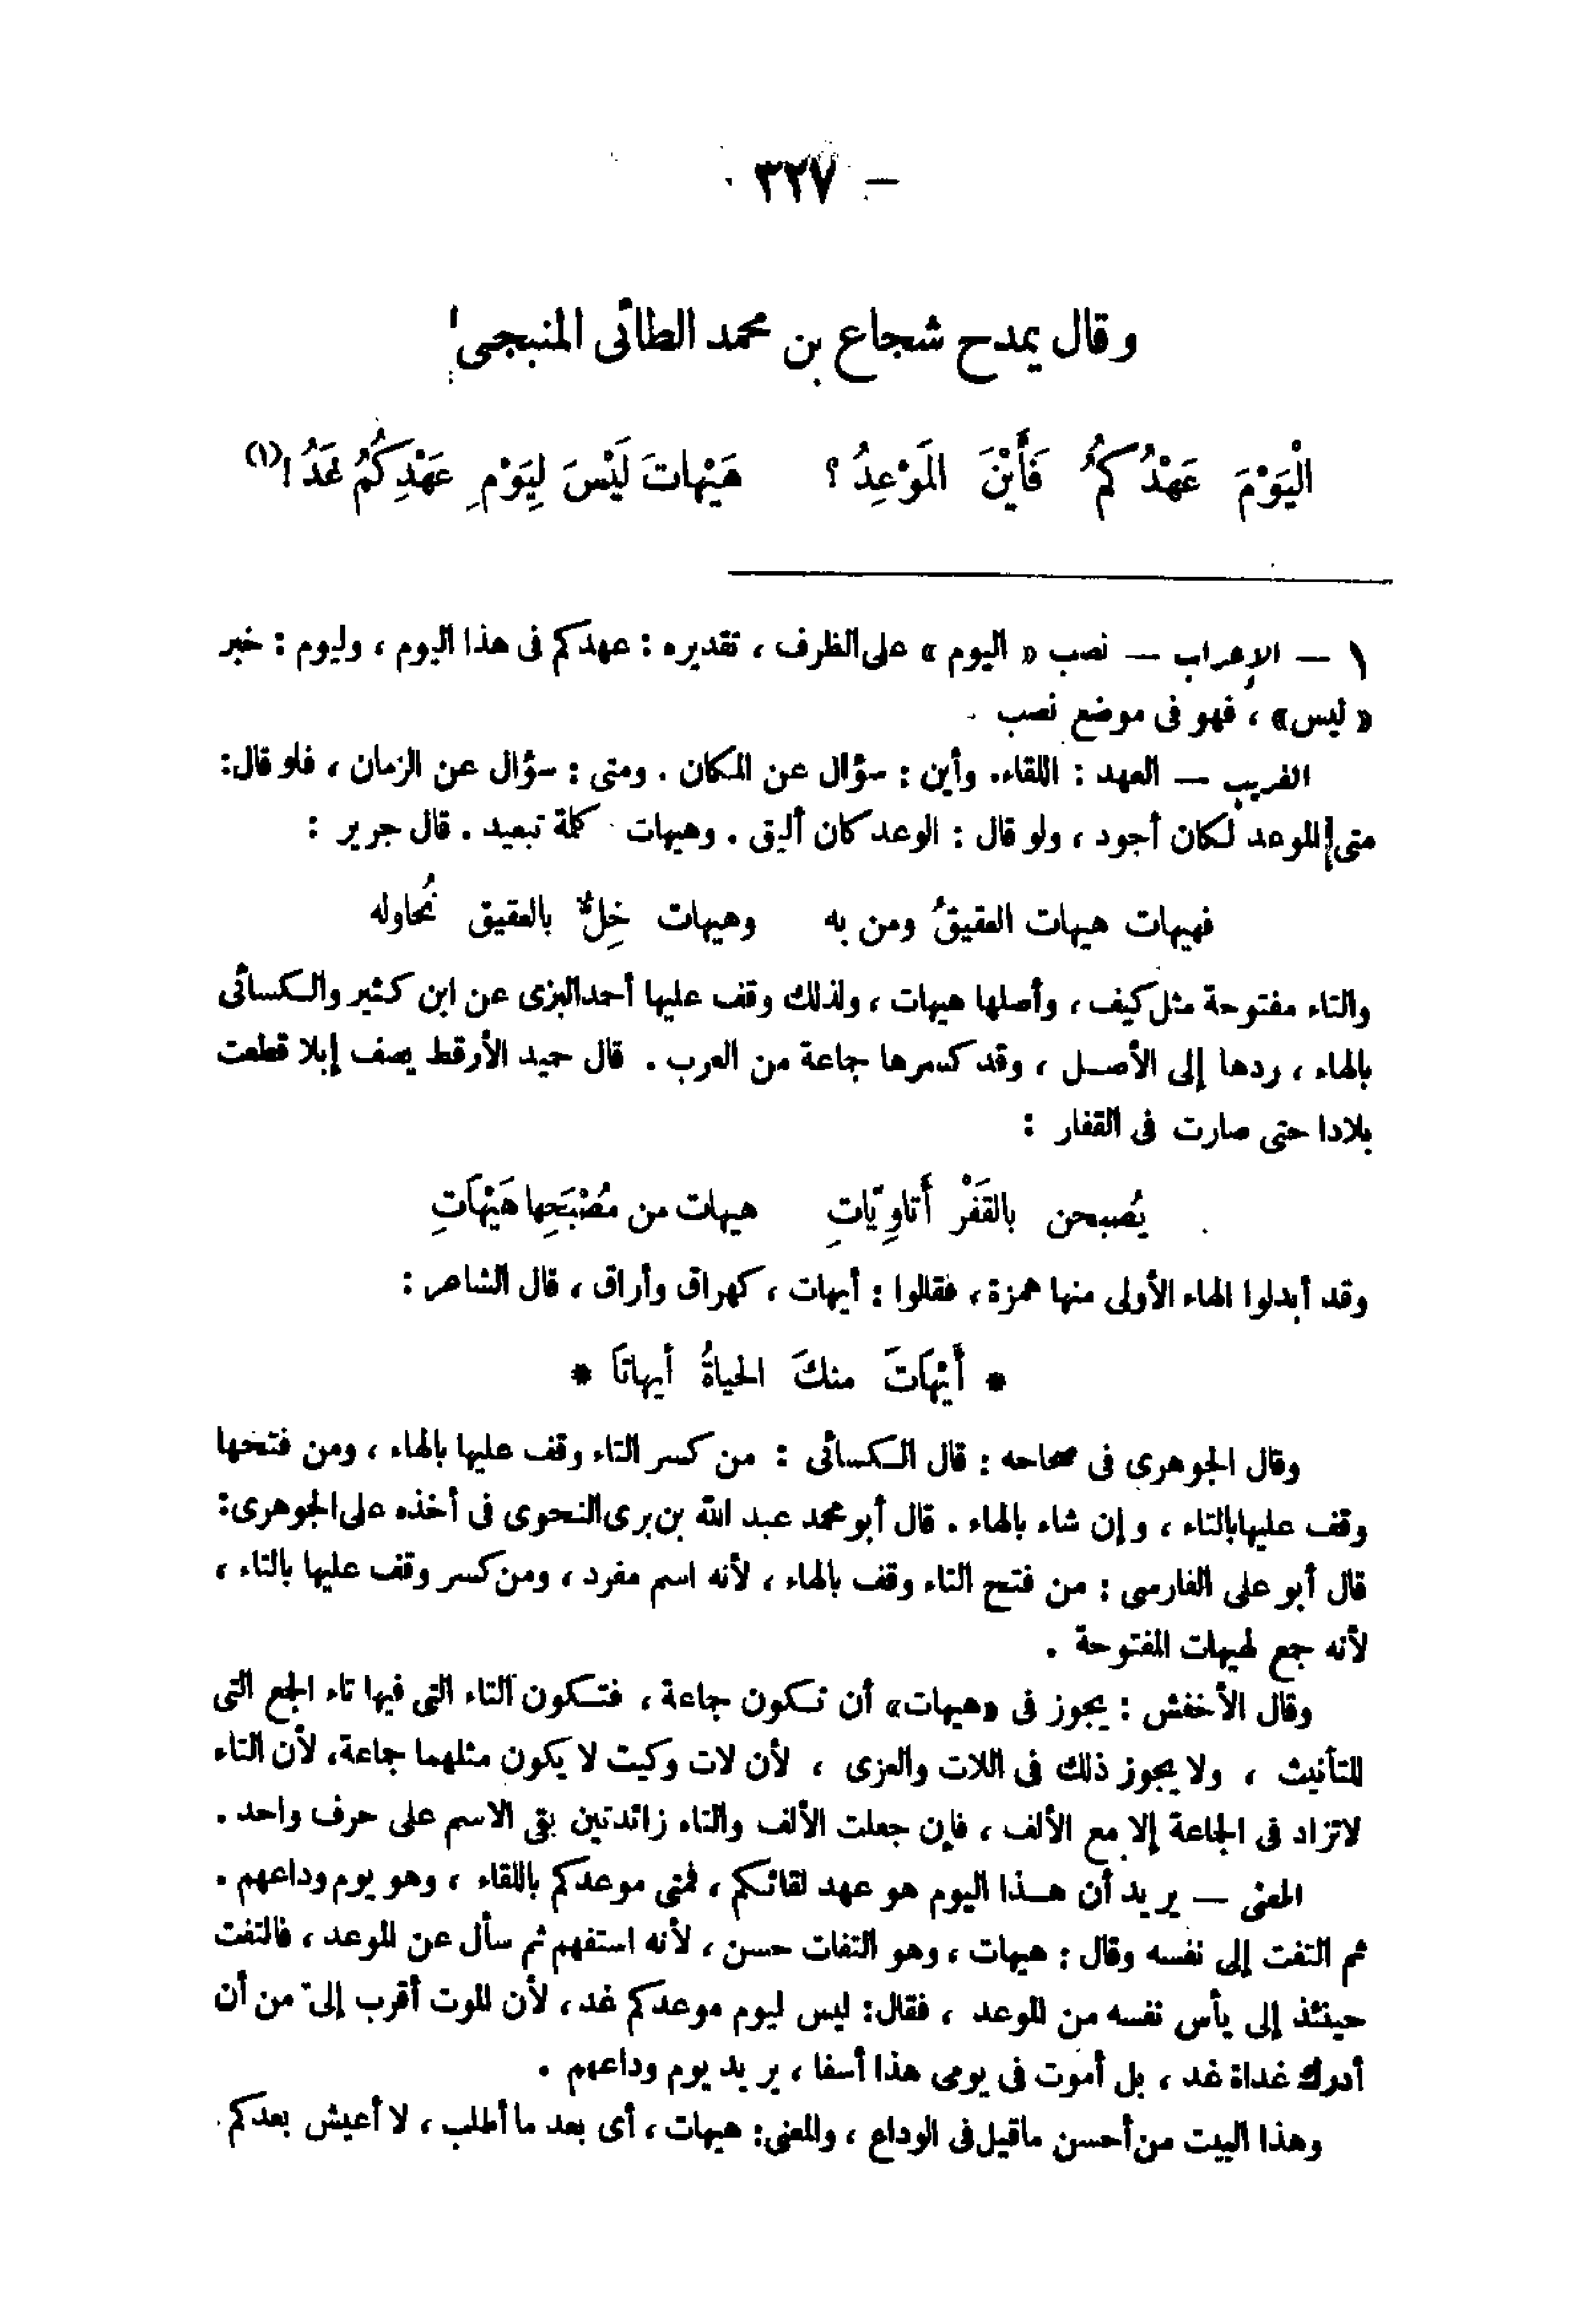 — ٣٢٧
وقال يمدح شجاع بن محمد الطائى المنبجى
الْيَوْمَ عَهْدُكُمُ فَأَيْنَ المَوْعِدُ ؟ هَيْهاتَ لَيْسَ لِيَوْمِ عَهْدِكُمُ غَدُ ! (١)
١ — الإعراب — نصب « اليوم » على الظرف ، تقديره : عهدكم فى هذا اليوم ، وليوم : خبر
« ليس» ، فهو فى موضع نصب .
الغريب — العهد : اللقاء. وأين : سؤال عن المكان . ومتى : سؤال عن الزمان ، فلو قال:
متى الموعد لكان أجود ، ولو قال : الوعد كان أليق . وهيهات كلمة تبعيد . قال جرير :
فهيهات هيهات العقيقُ ومن به وهيهات خِلٌّ بالعقيق نُحاوله
والتاء مفتوحة مثل كيف ، وأصلها هيهات ، ولذلك وقف عليها أحمد البزى عن ابن كثير والكسائى
بالهاء ، ردها إلى الأصل ، وقد كسرها جماعة من العرب . قال حميد الأرقط يصف إبلا قطعت
بلادا حتى صارت فى القفار :
يُصبحن بالقَفْر أَتاوِيّاتِ هيهات من مُصْبَحِها هَيْهَاتِ
وقد أبدلوا الهاء الأولى منها همزة ، فقالوا : أيهات ، كهراق وأراق ، قال الشاعر :
* أَيْهَاتَ منكَ الحياةُ أيهاتَا *
وقال الجوهرى فى صحاحه : قال الكسائى : من كسر التاء وقف عليها بالهاء ، ومن فتحها
وقف عليها بالتاء ، وإن شاء بالهاء . قال أبو محمد عبد الله بن برى النحوى فى أخذه على الجوهرى:
قال أبو على الفارسى : من فتح التاء وقف بالهاء ، لأنه اسم مفرد ، ومن كسر وقف عليها بالتاء ،
لأنه جمع لهيهات المفتوحة .
وقال الأخفش : يجوز فى «هيهات» أن تكون جماعة ، فتكون التاء التى فيها تاء الجمع التى
للتأنيث ، ولا يجوز ذلك فى اللات والعزى ، لأن لات وكيت لا يكون مثلهما جماعة، لأن التاء
لاتزاد فى الجماعة إلا مع الألف ، فإن جعلت الألف والتاء زائدتين بقى الاسم على حرف واحد .
المعنى — يريد أن هذا اليوم هو عهد لقائكم ، فمتى موعدكم باللقاء ، وهو يوم وداعهم .
ثم التفت إلى نفسه وقال : هيهات ، وهو التفات حسن ، لأنه استفهم ثم سأل عن الموعد ، فالتفت
حينئذ إلى يأس نفسه من الموعد ، فقال: ليس ليوم موعدكم غد ، لأن الموت أقرب إلىّ من أن
أدرك غداة غد ، بل أموت فى يومى هذا أسفا ، يريد يوم وداعهم .
وهذا البيت من أحسن ماقيل فى الوداع ، والمعنى: هيهات ، أى بعد ما أطلب ، لا أعيش بعدكم .